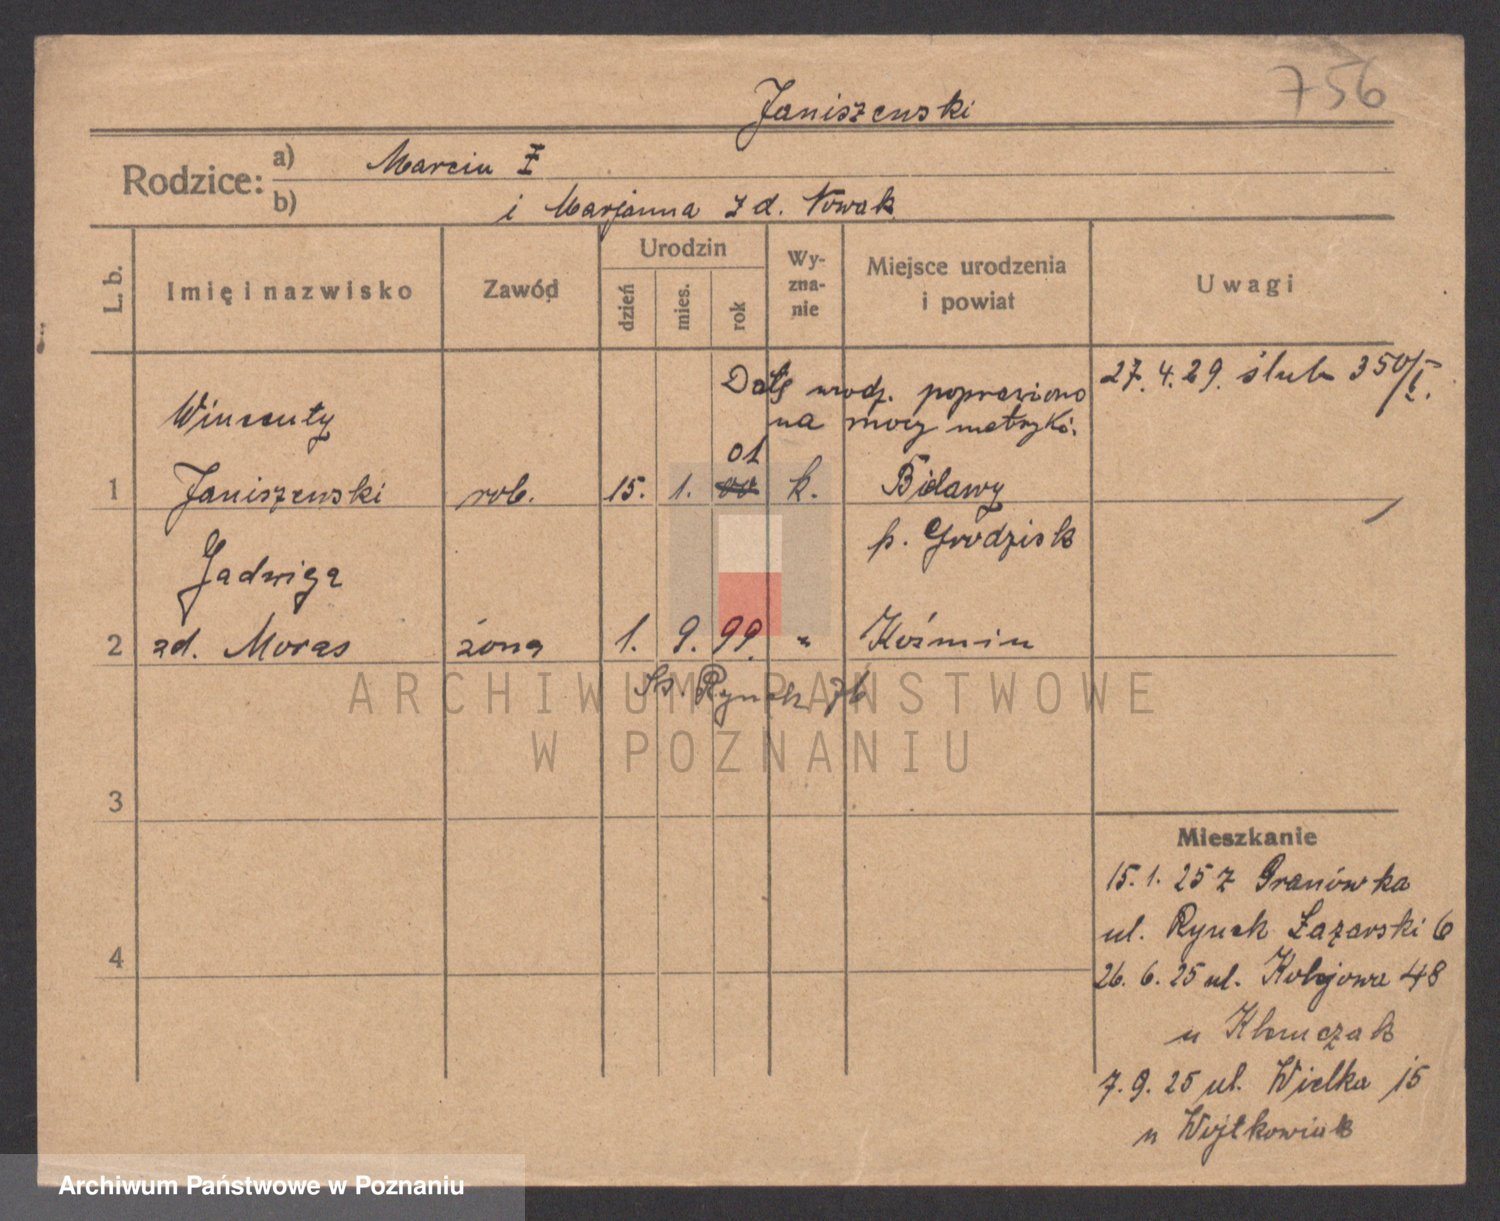 756
Janiszewski
Rodzice: a) Marcin Ż
b) i Marjanna z d. Nowak
L. b. Imię i nazwisko Zawód Urodzin dzień mies. rok Wy-zna-nie Miejsce urodzenia i powiat Uwagi
Datę urodz. poprawiono 27.4.29. ślub 350/I.
na mocy metryki.
Wincenty
01
1 Janiszewski rob. 15. 1. 00 k. Bielawy
p. Grodzisk
Jadwiga
2 zd. Moras żona 1. 9. 99. " Koźmin
St. Rynek 76
ARCHIWUM PAŃSTWOWE
W POZNANIU
3
4
Mieszkanie
15.1.25 z Granówka
ul. Rynek Łazarski 6
26.6.25 ul. Kolejowa 48
u Klemczak
7.9.25 ul. Wielka 15
u Wojtkowiak
Archiwum Państwowe w Poznaniu